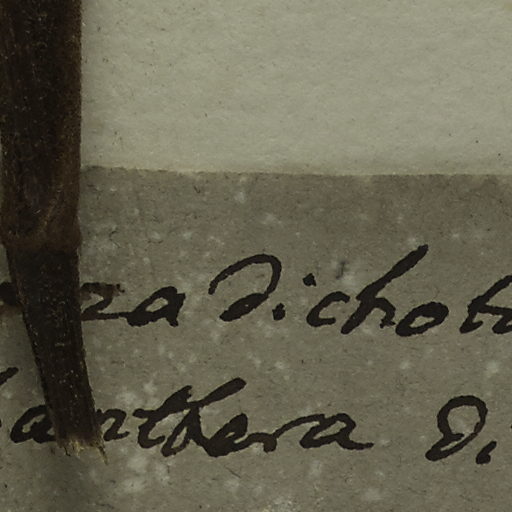 za dichot
anthera di